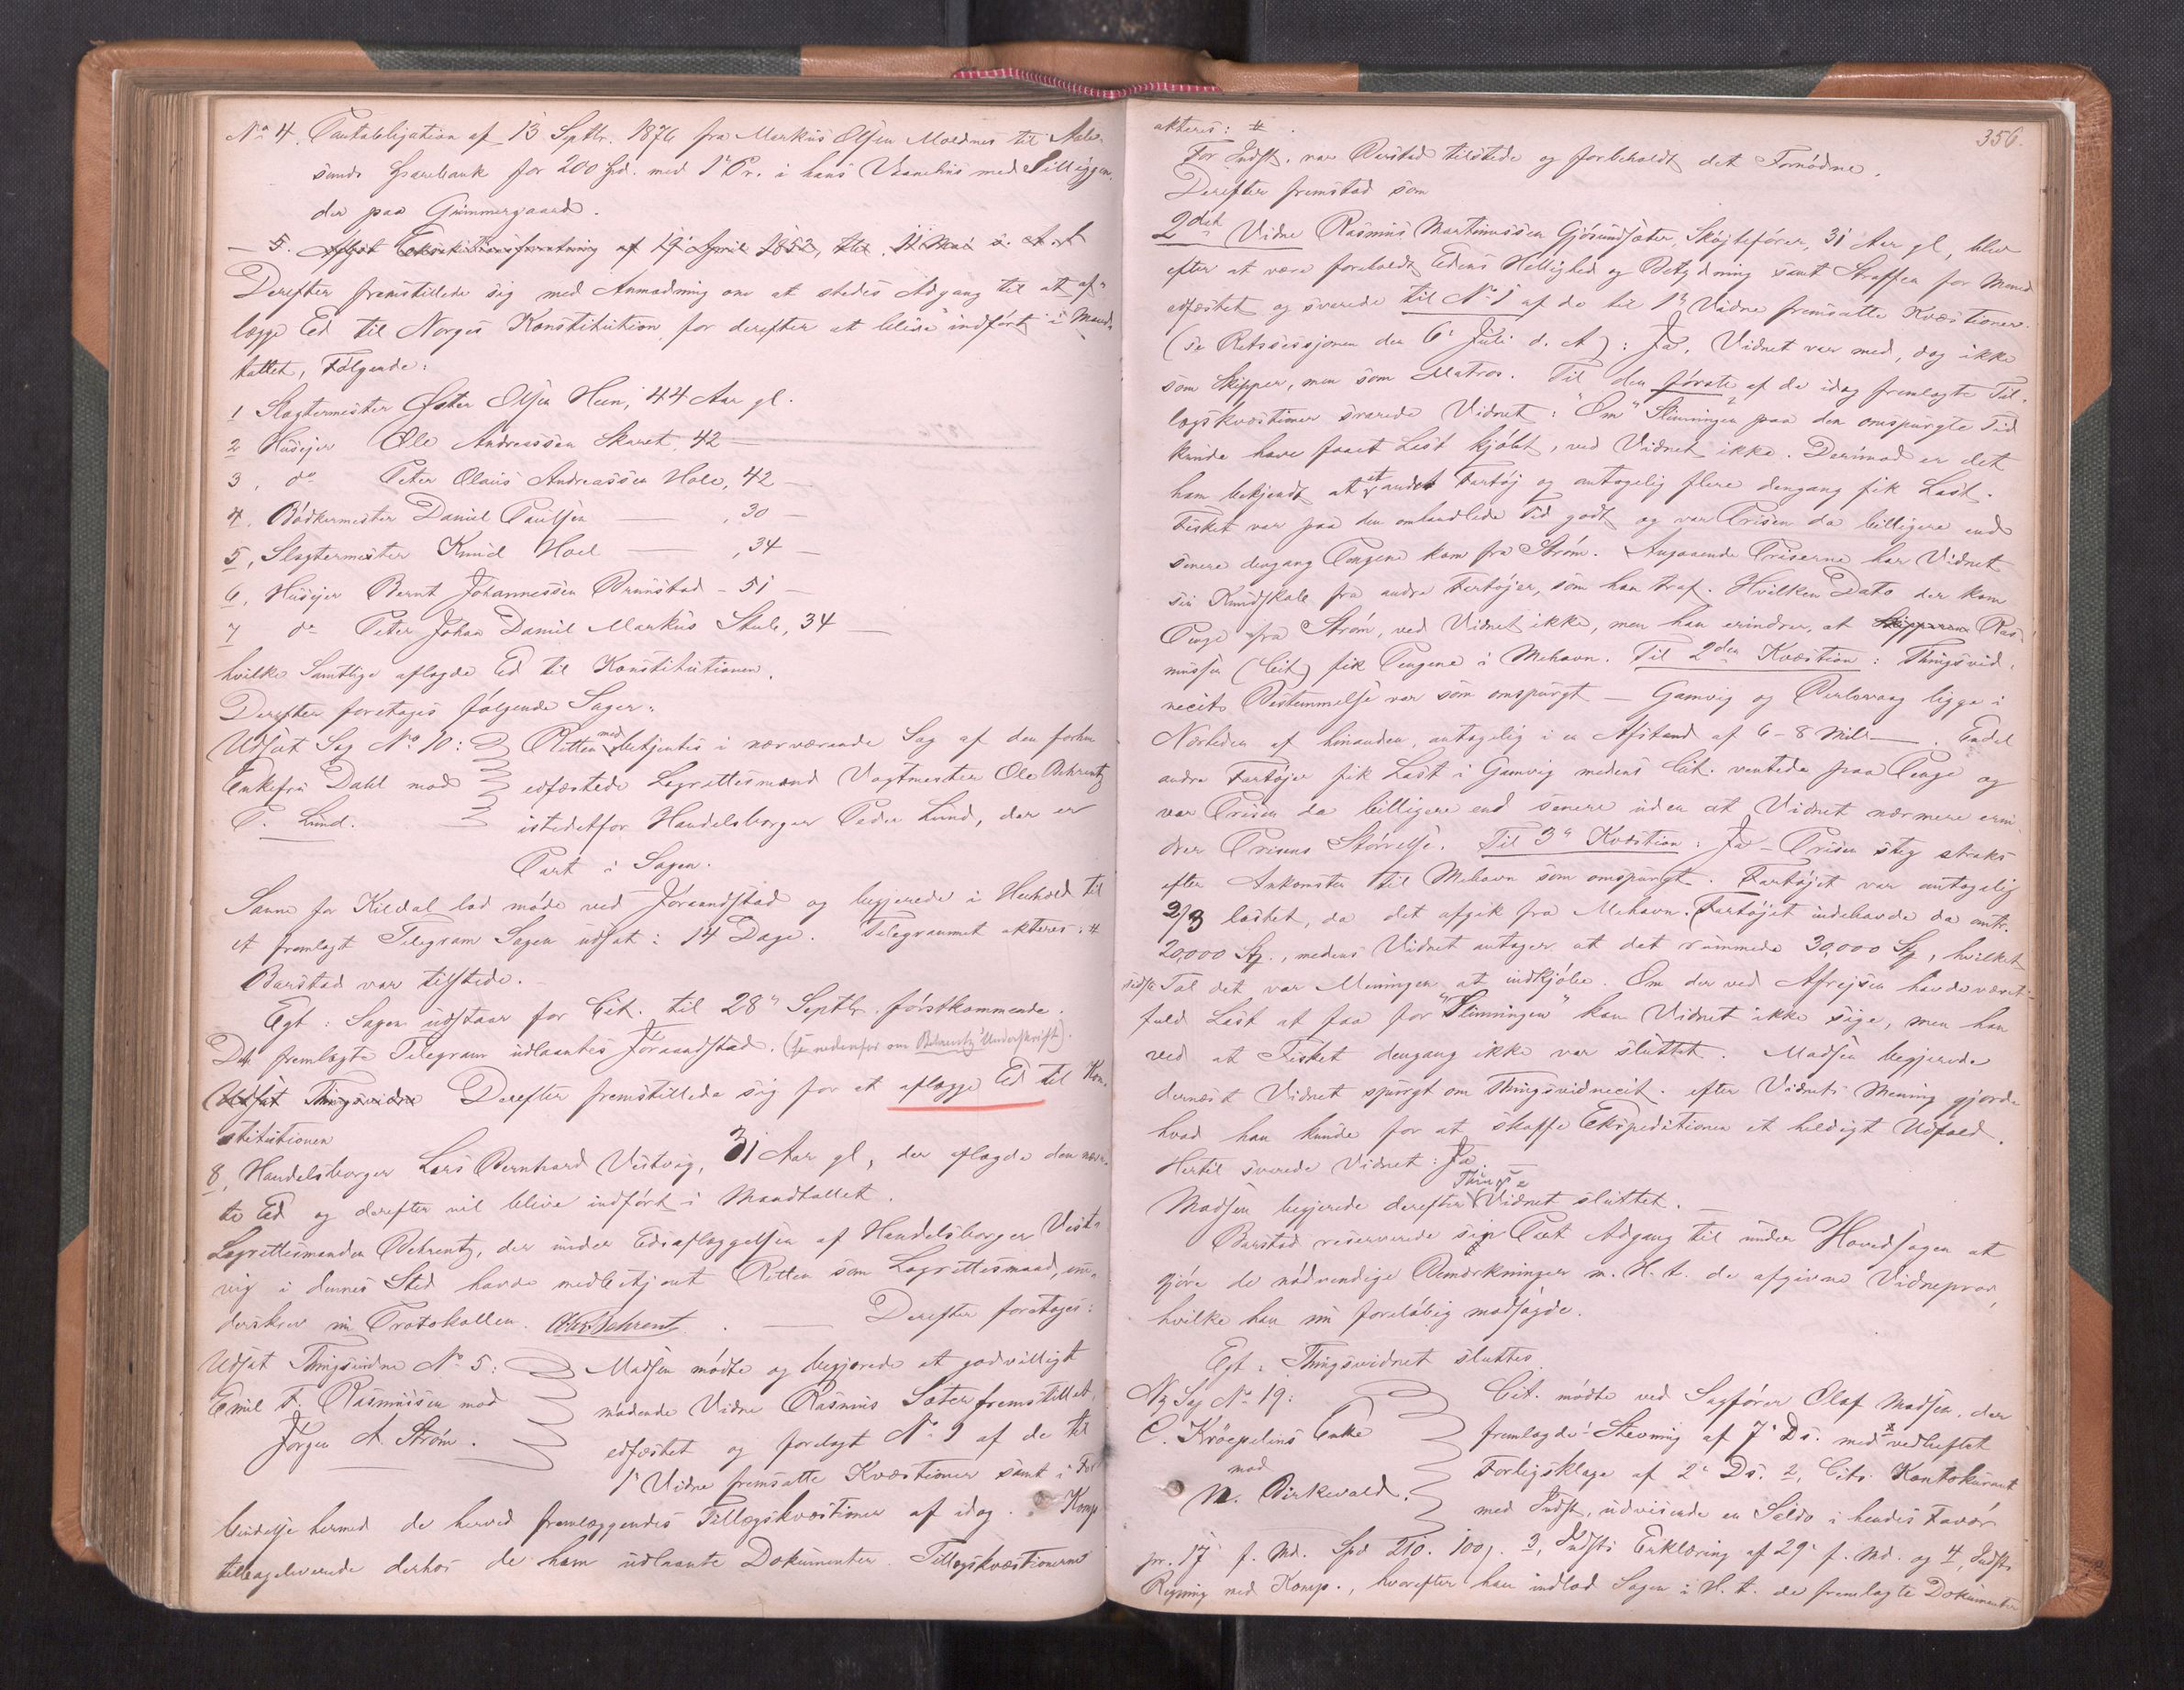 No 4. Panteobligation af 13 Septbr. 1876 fra Markus Olsen Moldnes til Aale-
sunds Sparebank for 200 Spd. med 1ste Pr. i hans Vaanehus med Tilliggen-
der paa Grimmergaard.
— 5. Afløst Exekutionsforretning af 19de April 1853, thl. 11 Mai s. A.
Derefter fremstillede sig med Anmodning om at stedes Adgang til at af-
lægge Ed til Norges Konstitution for derefter at blive indført i Mand-
tallet, Følgende:
1 Slagtermester Peter Olsen Hein, 44 Aar gl.
2 Huseier Ole Andreassen Skaret, 42 —
3, do Peter Olaus Andreassen Hole, 42 —
4, Bødkermester Daniel Paulsen — , 30 —
5, Slagtermester Knud Hoel — , 34 —
6, Huseier Bernt Johannessen Brunstad - 51 —
7 do Peter Johan Daniel Markus Skule, 34 —
hvilke Samtlige aflagde Ed til Konstitutionen.
Derefter foretoges følgende Sager:
Udsat Sag No 10: Retten medbetjentes i nærværende Sag af den forhen
Enkefru Dahl mod edfæstede Lagrettesmand Vagtmester Ole Behrentz
P. Lund. istedetfor Handelsborger Peder Lund, der er
Part i Sagen.
Samme for Kildal lod møde ved Foraandstad og begjerede i Henhold til
et fremlagt Telegram Sagen udsat i 14 Dage. Telegrammet akteres: #
Barstad var tilstede.
Egt: Sagen udstaar for Cit. til 28de Septbr. førstkommende.
Det fremlagte Telegram udlaantes Foraandstad. (Se nedenfor om Behrentz' Underskrift).
Udsat Thingsvidne Derefter fremstillede sig for at aflægge Ed til Kon-
stitutionen
8, Handelsborger Lars Bernhard Vestvig, 31 Aar gl, der aflagde den næv-
te Ed og derefter vil blive indført i Mandtallet.
Lagrettesmanden Behrentz, der under Edsaflæggelsen af Handelsborger Vest-
vig i dennes Sted havde medbetjent Retten som Lagrettesmand, un-
derskrev nu Protokollen. Ole Behrent. — Derefter foretoges:
Udsat Thingsvidne No 5: Madsen mødte og begjerede at godvilligt
Emil F. Rasmussen mod mødende Vidne Rasmus Sæter fremstillet,
Jørgen A. Strøm. edfæstet og forelagt No 1 af de til
1ste Vidne fremsatte Kvæstioner samt i For-
bindelse hermed de herved fremlæggendes Tillægskvæstioner af idag. Komp.
tilbageleverede derhos de ham udlaante Dokumenter. Tillægskvæstionerne
356.
akteres: #.
For Indst. var Barstad tilstede og forbeholdt det Fornødne.
Derefter fremstod som
2det Vidne Rasmus Martinussen Gjøsundsæter, Skøjtefører, 31 Aar gl, blev
efter at være foreholdt Edens Hellighed og Betydning samt Straffen for Mened
edfæstet og svarede til No 1 af de til 1ste Vidne fremsatte Kvæstioner
(se Retssessionen den 6te Juli d. A): Ja, Vidnet var med, dog ikke
som Skipper, men som Matros. Til den første af de idag fremlagte Til-
lægskvæstioner svarede Vidnet: Om "Slinningen" paa den omspurgte Tid
kunde have faaet Last kjøbt, ved Vidnet ikke. Derimod er det
ham bekjendt at et andet Fartøj og antagelig flere dengang fik Last.
Fisket var paa den omhandlede Tid godt og var Prisen da billigere end
senere dengang Pengene kom fra Strøm. Angaaende Priserne har Vidnet
sin Kundskab fra andre Fartøjer, som han traf. Hvilken Dato der kom
Penge fra Strøm, ved Vidnet ikke, men han erindrer, at Skipperen Ras-
mussen (Cit) fik Pengene i Mehavn. Til 2den Kvæstion: Thingsvid-
necits Bestemmelse var som omspurgt — Gamvig og Berlevaag ligge i
Nærheden af hinanden, antagelig i en Afstand af 6-8 Mile —. Endel
andre Fartøjer fik Last i Gamvig medens Cit. ventede paa Penge og
var Prisen da billigere end senere uden at Vidnet nærmere erin-
drer Prisens Størrelse. Til 3die Kvæstion: Ja - Prisen steg straks
efter Ankomsten til Mehavn som omspurgt. Fartøjet var antagelig
2/3 lastet, da det afgik fra Mehavn. Fartøjet indehavde da omtr.
20,000 Sk., medens Vidnet antager at det rummede 30,000 Sk, hvilket
sidste Tal det var Meningen at indkjøbe. Om der ved Afrejsen havde været
fuld Last at faa for "Slinningen" kan Vidnet ikke sige, men han
ved at Fisket dengang ikke var sluttet. Madsen begjerede
dernæst Vidnet spurgt om Thingsvidnecit. efter Vidnets Mening gjorde
hvad han kunde for at skaffe Ekspeditionen et heldigt Udfald.
Hertil svarede Vidnet: Ja.
Madsen begjerede derefter Things Vidnet sluttet. —
Barstad reserverede sin Part Adgang til under Hovedsagen at
gjøre de nødvendige Bemærkninger m. H. t. de afgivne Vidneprov,
hvilke han nu foreløbig modsagde.
Egt: Thingsvidnet sluttes.
Ny Sag No 19: Cit. mødte ved Sagfører Olaf Madsen, der
C. Kröepeliens Enke fremlagde: Stevning af 7de Ds. med vedheftet
mod Forligsklage af 2den Ds. 2, Cits. Kontokurant
M. Birkevold. med Indst, udvisende en Saldo i hendes Favør
pr. 17 f. Md. Spd 210. 100 s. 3, Indsts Erklæring af 29de f. Md. og 4, Indsts
Regning med Komp., hvorefter han indlod Sagen i H. t. de fremlagte Dokumenter